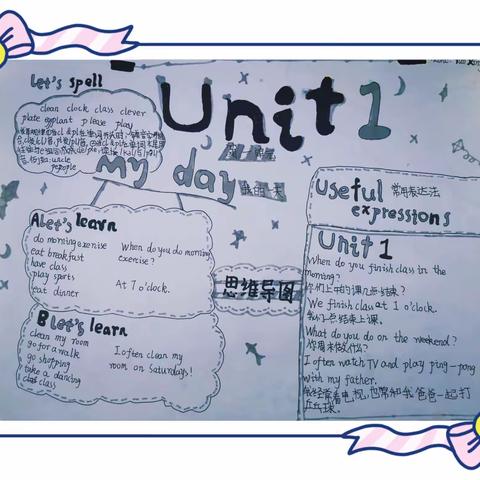 Unit 1
My day
我的一天
Let's spell
clean clock class clever
plate eggplant please play
A Let's learn
do morning exercise
eat breakfast
have class
play sports
eat dinner
When do you do morning
exercise?
At 7 o'clock.
B Let's learn
clean my room
go for a walk
go shopping
take a dancing
class
I often clean my
room on Saturdays!
思维导图
Useful 常用表达法
expressions
Unit 1
When do you finish class in the
morning?
We finish class at 1 o'clock.
What do you do on the weekend?
你周末做什么?
I often watch TV and play ping-pong
with my father.
我经常看电视,也常和我爸爸一起打
乒乓球。